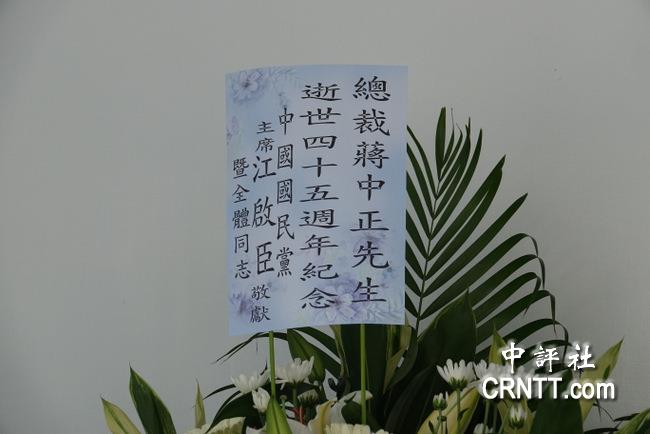 總裁蔣中正先生
逝世四十五週年紀念
中國國民黨
主席江啟臣敬獻
暨全體同志
中評社
CRNTT.com